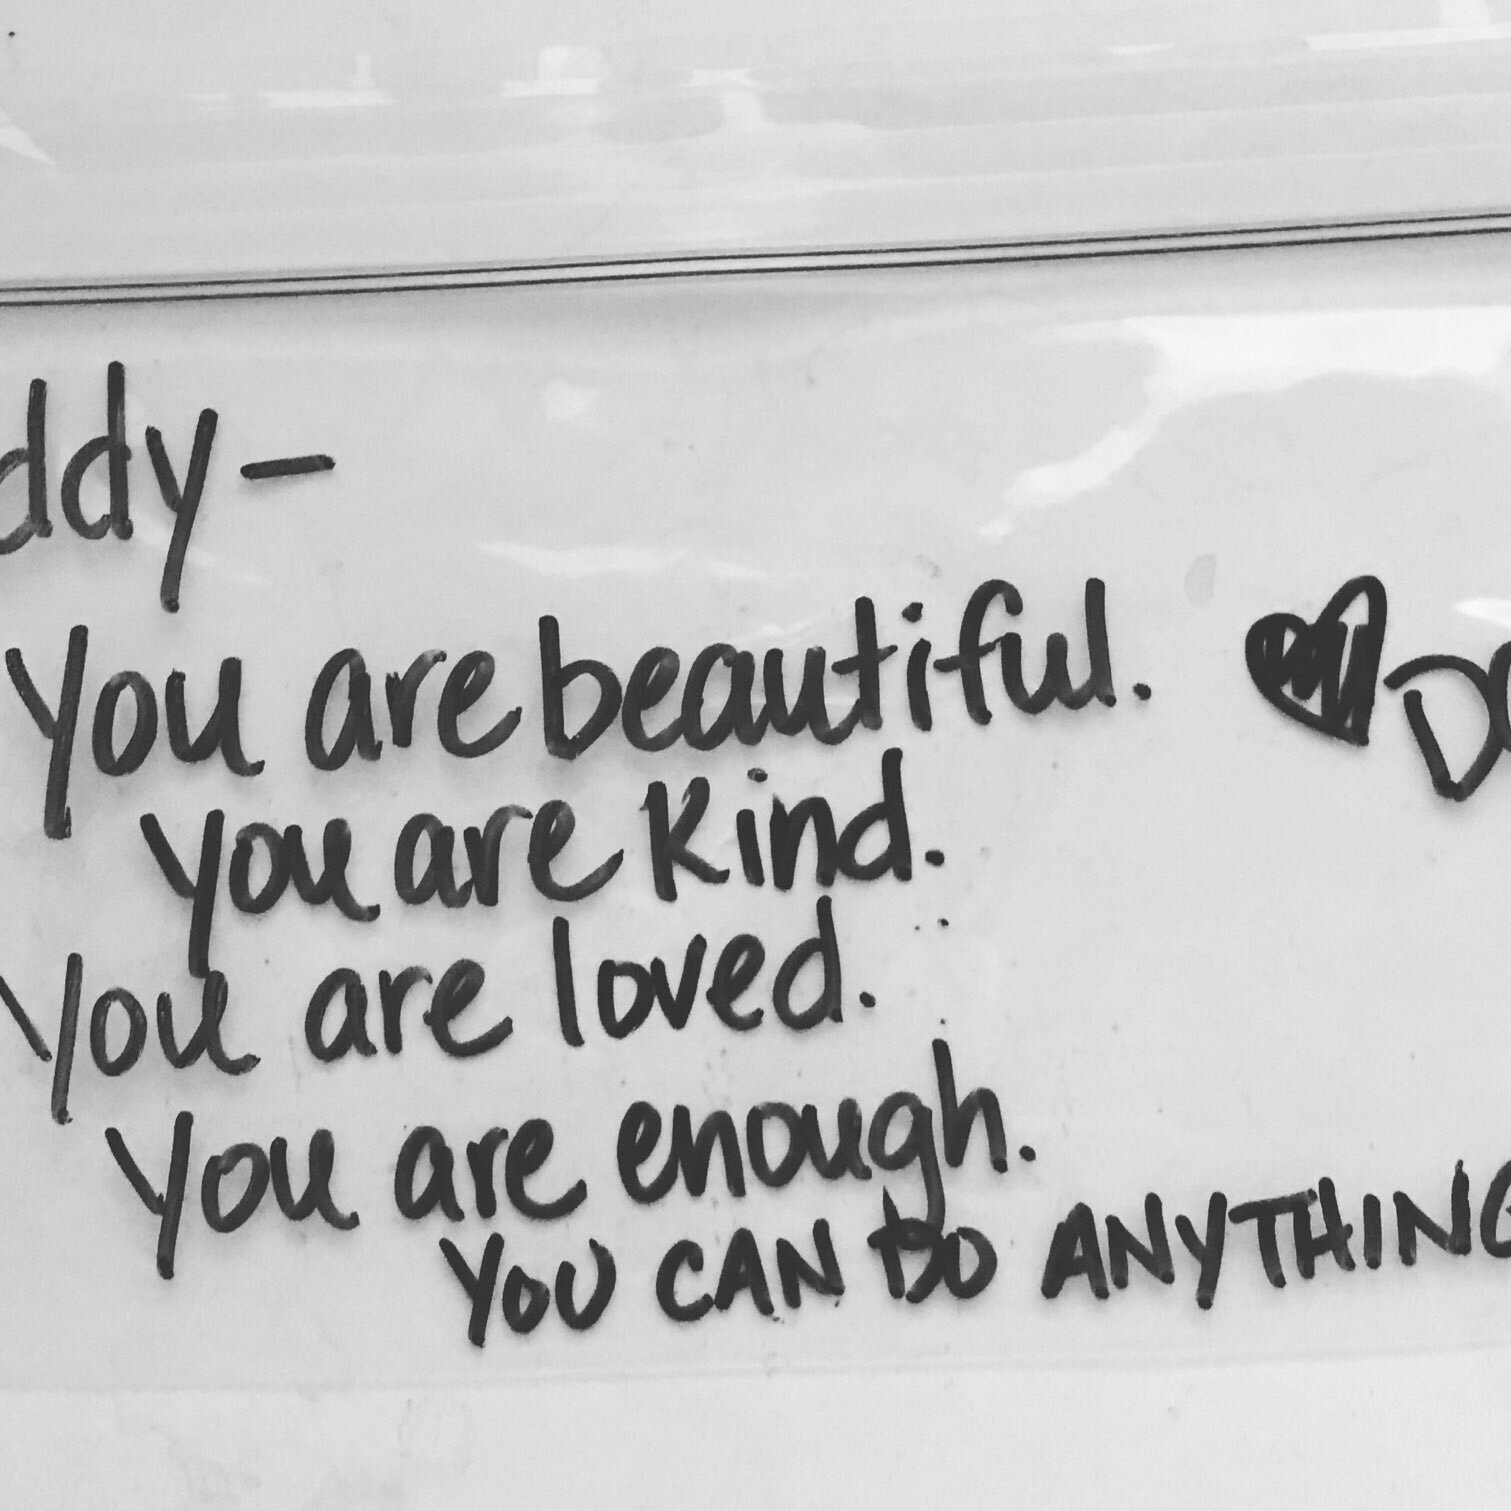 ddy-
You are beautiful. ♥ DO
You are kind.
You are loved.
You are enough.
YOU CAN DO ANYTHING